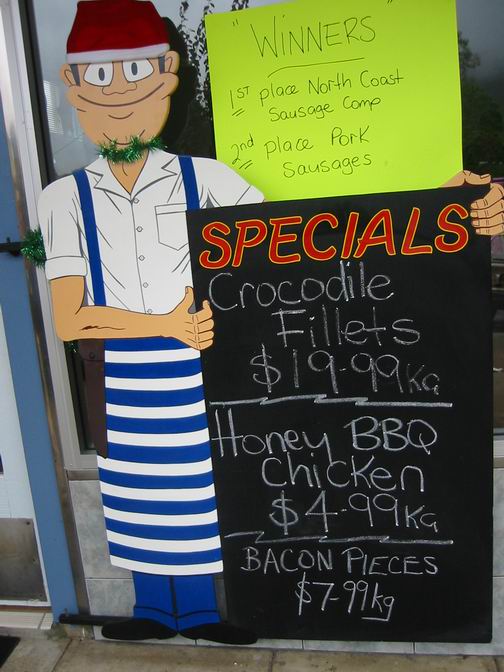 " WINNERS "
1ST place North Coast
Sausage Comp
2nd place Pork
Sausages
SPECIALS
Crocodile
Fillets
$19-99KG
Honey BBQ
Chicken
$4-99KG
BACON PIECES
$7-99kg